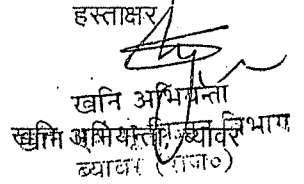 हस्ताक्षर
खनि अभियन्ता
खनि अभियन्ता, ब्यावर विभाग
ब्यावर (राज०)